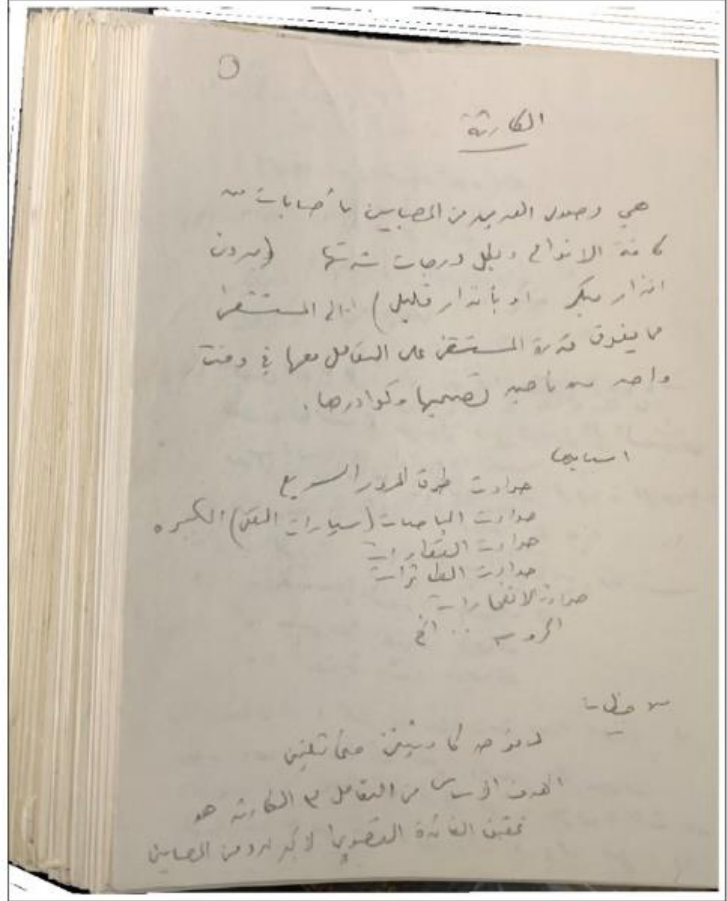 الكارثة
هي وصول العديد من المصابين بأصابات من
كافة الانواع وبكل درجات شدتها (بدون
انذار مبكر او بأنذار قليل) الى المستشفى
مما يفوق قدرة المستشفى على التعامل معها في وقت
واحد من ناحية تصميمها وكوادرها.
اسبابها
حوادث طرق المرور السريع
حوادث الباصات (سيارات النقل) الكبيره
حوادث القطارات
حوادث الطائرات
حوادث الانفجارات
الحروب ... الخ
ملاحظات
لا توجد كارثتين متشابهتين
الهدف الاساس من التعامل مع الكارثه هو
تحقيق الفائدة القصوى لاكبر عدد من المصابين